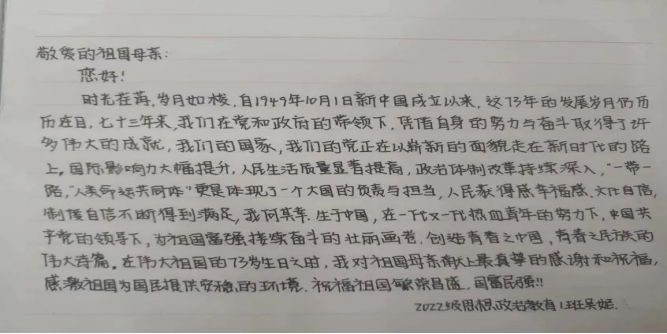 敬爱的祖国母亲：
您好！
时光荏苒，岁月如梭，自1949年10月1日新中国成立以来，这73年的发展岁月仍历
历在目，七十三年来，我们在党和政府的带领下，凭借自身的努力与奋斗取得了许
多伟大的成就，我们的国家，我们的党正在以崭新的面貌走在新时代的路
上。国际影响力大幅提升，人民生活质量显著提高，政治体制改革持续深入，“一带一
路，”人类命运共同体”更是体现了一个大国的负责与担当，人民获得感幸福感，文化自信，
制度自信不断得到满足，我何其幸，生于中国，在一代又一代热血青年的努力下，中国共
产党的领导下，为祖国富强接续奋斗的壮丽画卷，创造青春之中国，青春之民族的
伟大诗篇。在伟大祖国的73岁生日之时，我对祖国母亲献上最真挚的感谢和祝福，
感激祖国为国民提供安稳的环境，祝福祖国繁荣昌盛，国富民强！！
2022级思想政治教育1班吴妮